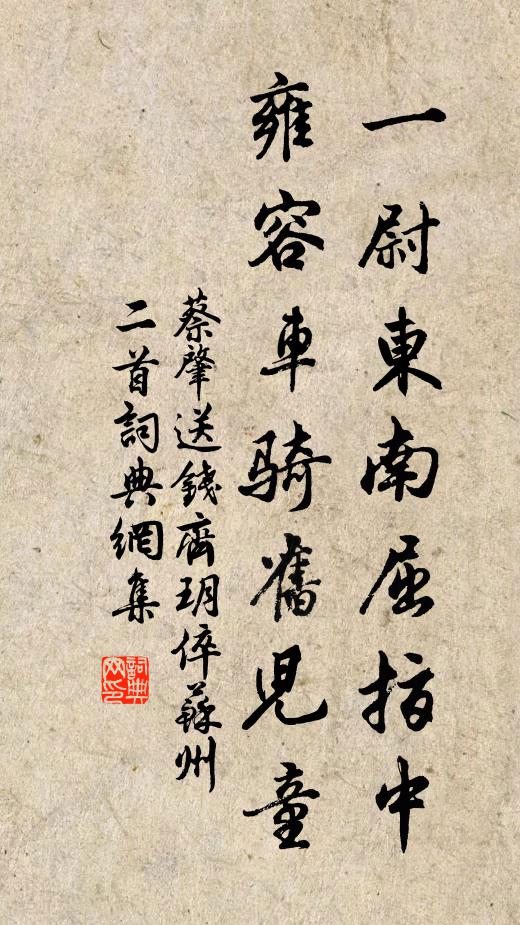 一尉東南屈指中
雍容車騎舊兒童
蔡肇送錢齊玥倅蘇州
二首詞典網集
詞典网印